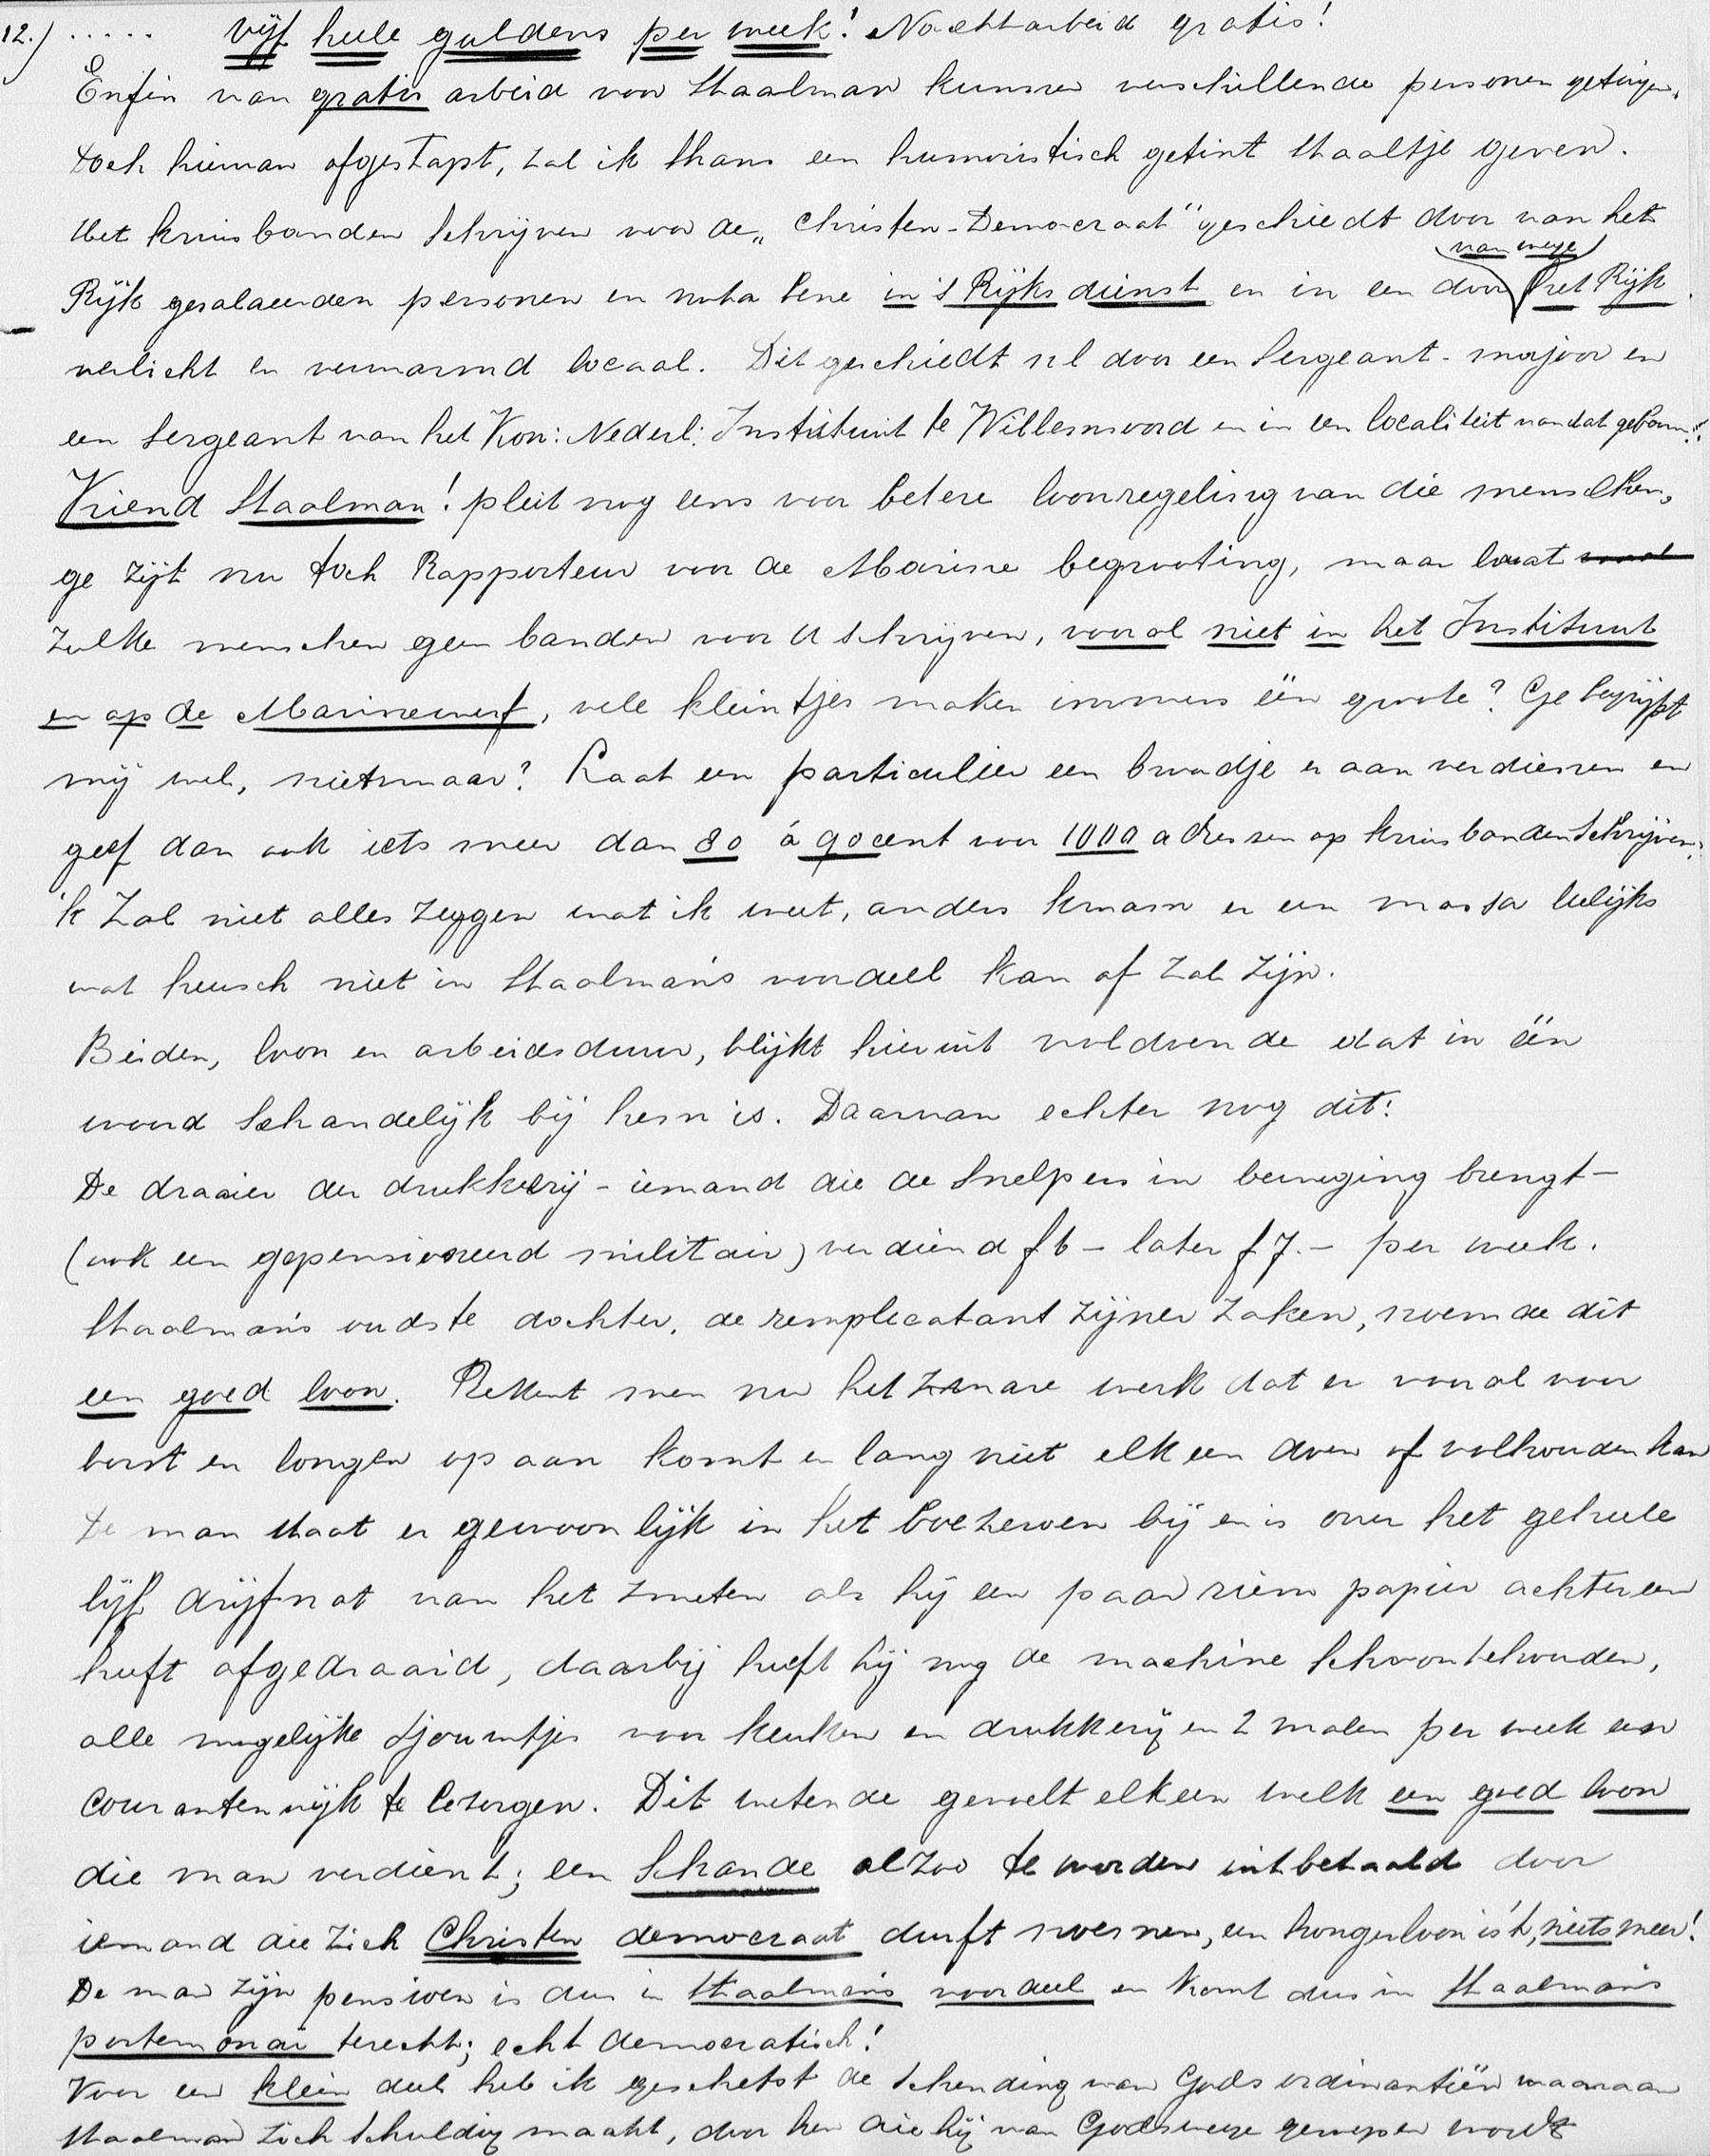 12.) ..... vijf heele guldens per week! Nachtarbeid gratis!
Enfin van gratis arbeid voor Staalman kunnen verschillende personen getuigen,
doch hiervan afgestapt, zal ik thans een humoristisch getint staaltje geven.
Het kruisbanden schrijven voor de „Christen-Democraat" geschiedt door van het
van wege
Rijk gesalaeerden personen en nota bene in 's Rijks dienst en in een door het Rijk
verlicht en verwarmd locaal. Dit geschiedt nl door een Sergeant-majoor en
een Sergeant van het Kon: Nederl: Instituut te Willemsoord en in een localiteit van dat gebouw!!
Vriend Staalman! pleit nog eens voor betere loonregeling van die menschen,
ge zijt nu toch Rapporteur voor de Marine begrooting, maar laat
zulke menschen geen banden voor U schrijven, vooral niet in het Instituut
en op de Marinewerf, vele kleintjes maken immers één groote? Ge begrijpt
mij wel, nietwaar? Laat een particulier een broodje er aan verdienen en
geef dan ook iets meer dan 80 á 90 cent voor 1000 adressen op kruisbanden schrijven;
'k Zal niet alles zeggen wat ik weet, anders kwam er een massa leelijks
wat heusch niet in Staalman's voordeel kan of zal zijn.
Beiden, loon en arbeidsduur, blijkt hieruit voldoende dat in één
woord schandelijk bij hem is. Daarvan echter nog dit:
De draaier der drukkerij - iemand die de snelpers in beweging brengt -
(ook een gepensioneerd militair) verdiend f 6 - later f 7.- per week.
Staalman's oudste dochter, de remplecatant zijner zaken, noemde dit
een goed loon. Rekent men nu het zware werk dat er vooral voor
borst en longen op aan komt en lang niet elk een doen of volhouden kan
de man staat er gewoonlijk in het boezeroen bij en is over het geheele
lijf drijfnat van het zweten als hij een paar riem papier achtereen
heeft afgedraaid, daarbij heeft hij nog de machine schoon te houden,
alle mogelijke sjouwtjes voor keuken en drukkerij en 2 malen per week een
courantenwijk te bezorgen. Dit wetende gevoelt elkeen welk een goed loon
die man verdient; een schande alzoo te worden uitbetaald door
iemand die zich Christen democraat durft noemen, een hongerloon is 't, niets meer!
De man zijn pensioen is dus in Staalman's voordeel en komt dus in Staalman's
portemonai terecht; echt democratisch!
Voor een klein deel heb ik geschetst de schending van Gods ordinantiën waaraan
Staalman zich schuldig maakt, door hen die hij van Godswege geroepen wordt